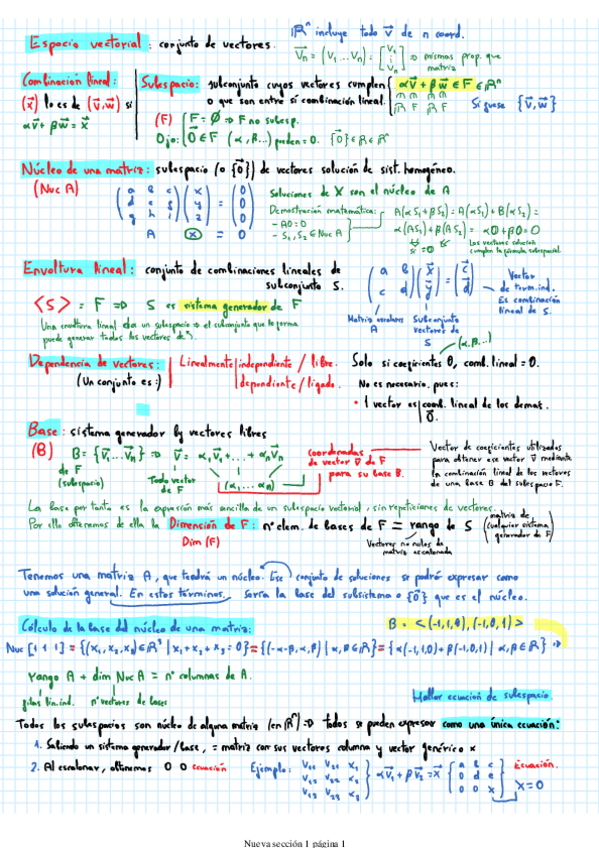 Espacio vectorial: conjunto de vectores.
ℝⁿ incluye todo v⃗ de n coord.
V⃗n = (V₁ ... Vn) = [V₁ V₂ ⋮ Vn] ⇒ mismas prop. que matriz
Combinación lineal:
(x⃗) lo es de (v⃗,w⃗) si
αv⃗ + βw⃗ = x⃗
Subespacio: subconjunto cuyos vectores cumplen
o que son entre sí combinación lineal.
αv⃗ + βw⃗ ∈ F ∈ ℝⁿ
ℝ F ℝ F
Si fuese {v⃗,w⃗}
(F) {F = ∅ ⇒ F no subesp.
Ojo: 0⃗ ∈ F (α, β...) pueden = 0. {0⃗} ∈ ℝ ∈ ℝⁿ
Núcleo de una matriz: subespacio (o {0⃗}) de vectores solución de sist. homogéneo.
(Nuc A)
(a b c d e f g h i) (x y z) = (0 0 0)
A x = 0
Soluciones de X son el núcleo de A
Demostración matemática:
- A0 = 0
- S₁, S₂ ∈ Nuc A
A(αS₁ + βS₂) = A(αS₁) + B(αS₂) =
α(AS₁) + β(AS₂) = α0 + β0 = 0
Si = 0
Los vectores solución cumplen la fórmula subespacial.
Envoltura lineal: conjunto de combinaciones lineales de
subconjunto S.
<S> = F ⇒ S es sistema generador de F
Una envoltura lineal da un subespacio y el subconjunto que lo forma
puede generar todos los vectores de
(a b c d) (x⃗ y⃗) = (c⃗ d⃗)
Matriz escalares A
Subconjunto vectores de S
Vector de term. ind.
Es combinación lineal de S.
(α, β...)
Dependencia de vectores:
(Un conjunto es:)
Linealmente independiente / libre.
dependiente / ligado.
Solo si coeficientes 0, comb. lineal = 0.
No es necesario, pues:
• 1 vector es comb. lineal de los demás.
0⃗.
Base: sistema generador by vectores libres
(B)
B = {v⃗₁ ... v⃗n} ⇒ v⃗ = α₁v⃗₁ + ... + αnv⃗n
de F (subespacio)
Todo vector de F
(α₁ ... αn)
coordenadas de vector v⃗ de F para su base B.
Vector de coeficientes utilizados
para obtener ese vector v⃗ mediante
la combinación lineal de los vectores
de una base B del subespacio F.
La base por tanto es la expresión más sencilla de un subespacio vectorial, sin repeticiones de vectores.
Por ello obtenemos de ella la Dimensión de F: nº elem. de bases de F = rango de S
Dim (F)
Vectores no nulos de matriz escalonada
matriz de (cualquier sistema generador de F)
Tenemos una matriz A, que tendrá un núcleo. Ese conjunto de soluciones se podrá expresar como
una solución general. En estos términos, sería la base del subsistema o {0⃗} que es el núcleo.
Cálculo de la base del núcleo de una matriz:
B = <(-1,1,0), (-1,0,1)>
Nuc [1 1 1] = {(x₁, x₂, x₃) ∈ ℝ³ | x₁ + x₂ + x₃ = 0} = {(-α-β, α, β) | α, β ∈ ℝ} = {α(-1,1,0) + β(-1,0,1) | α, β ∈ ℝ} ⇒
rango A + dim Nuc A = nº columnas de A.
filas lin. ind. nº vectores de bases
Hallar ecuación de subespacio.
Todos los subespacios son núcleo de alguna matriz (en ℝⁿ) ⇒ todos se pueden expresar como una única ecuación:
1. Sabiendo un sistema generador / base, = matriz con sus vectores columna y vector genérico x
2. Al escalonar, obtenemos 0 0 ecuación
Ejemplo: V₁₁ V₂₁ x₁
V₁₂ V₂₂ x₂
V₁₃ V₂₃ x₃
αv⃗₁ + βv⃗₂ = x⃗
a b c
0 d e
0 0 x
Ecuación.
x = 0
Nueva sección 1 página 1